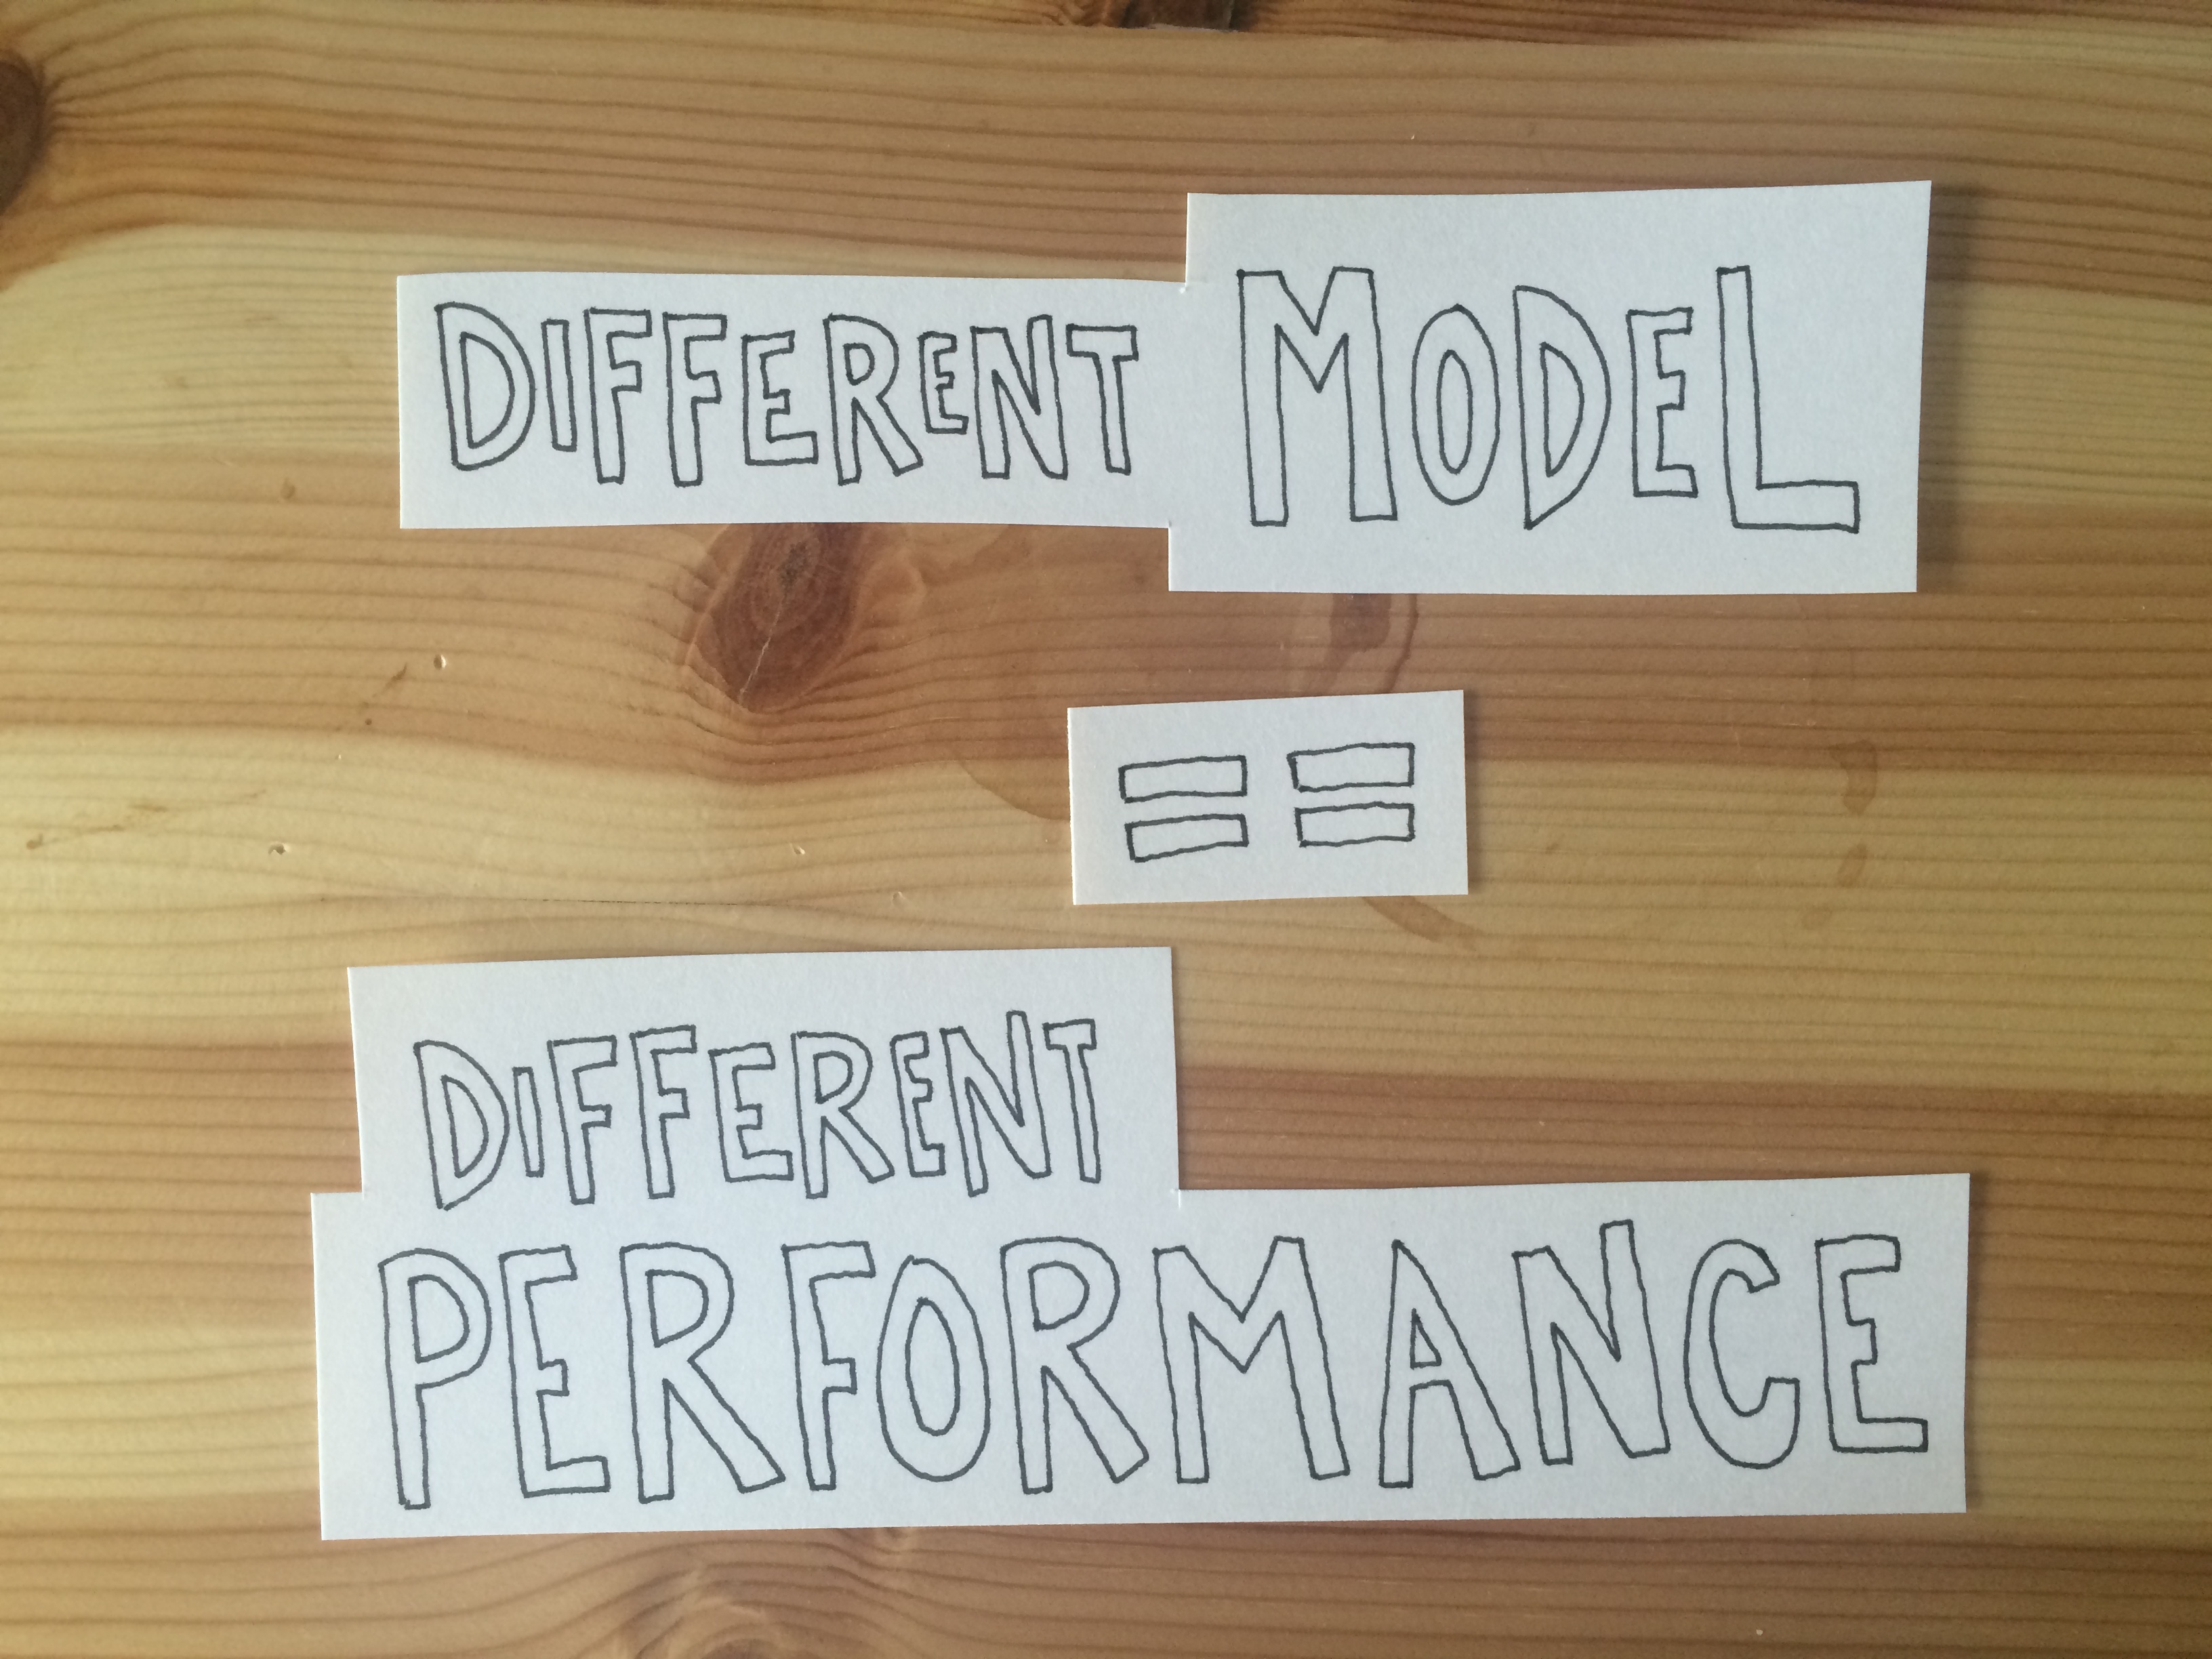 DIFFERENT MODEL
==
DIFFERENT
PERFORMANCE